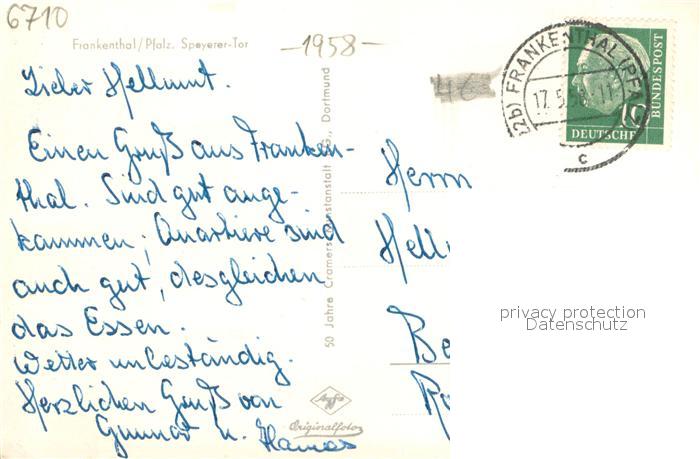 6710
Frankenthal/Pfalz. Speyerer-Tor
-1958-
46
(22b) FRANKENTHAL (PFALZ)
17.5.58.-11
c
10
DEUTSCHE
BUNDESPOST
Lieber Hellmut.
Einen Gruß aus Franken-
thal. Sind gut ange-
kommen; Quartiere sind
auch gut, desgleichen
das Essen.
Wetter unbeständig.
Herzlichen Gruß von
Gunnar u. Hannes
50 Jahre Cramers Kunstanstalt KG., Dortmund
Agfa
Originalfoto
Herrn
Hell
Be
privacy protection
Datenschutz